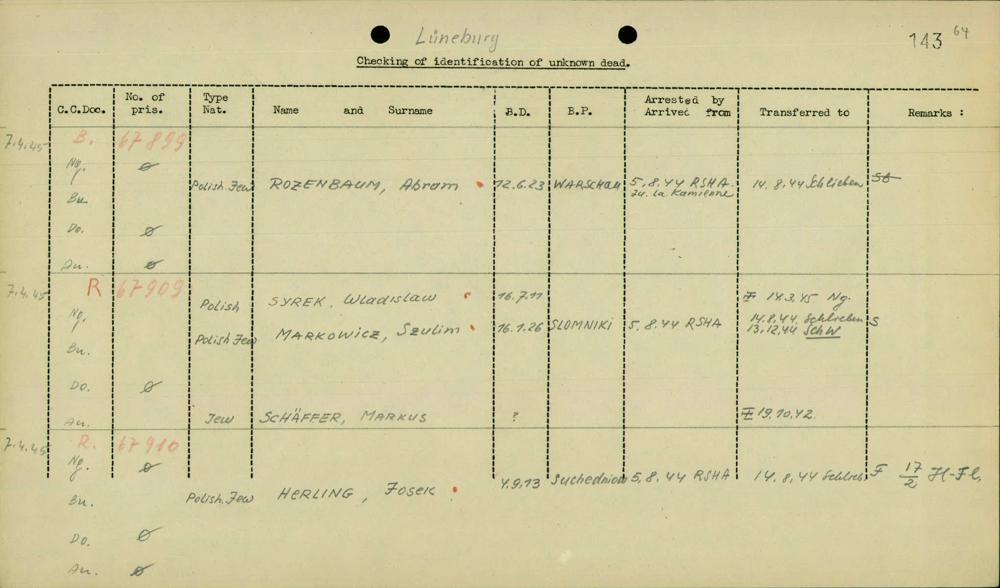 Lüneburg
143 64
Checking of identification of unknown dead.
C.C.Doc. No. of pris. Type Nat. Name and Surname B.D. B.P. Arrested by Arrived from Transferred to Remarks :
7.4.45 B. 67899
Ng. ø
Polish.Jew ROZENBAUM, Abram 12.6.23 WARSCHAU 5.8.44 RSHA. 14.8.44 Schlieben
Bu. zu. La Kamienne
Do. ø
Au. ø
7.4.45 R 67909
Polish SYREK, Wladislaw 16.7.11 14.3.45 Ng.
Ng. 14.8.44. Schlieben S
Polish Jew MARKOWICZ, Szulim 16.1.26 SLOMNIKI 5.8.44 RSHA 13.12.44 SchW
Bu.
Do. ø
Au. Jew SCHÄFFER, MARKUS ? 19.10.42.
7.4.45 R. 67910
Ng. ø
Bu. Polish.Jew HERLING, Josek 4.9.13 Suchedniow 5.8.44 RSHA 14.8.44 Schlieb. F 17/2 Hl-Fl.
Do. ø
Au. ø